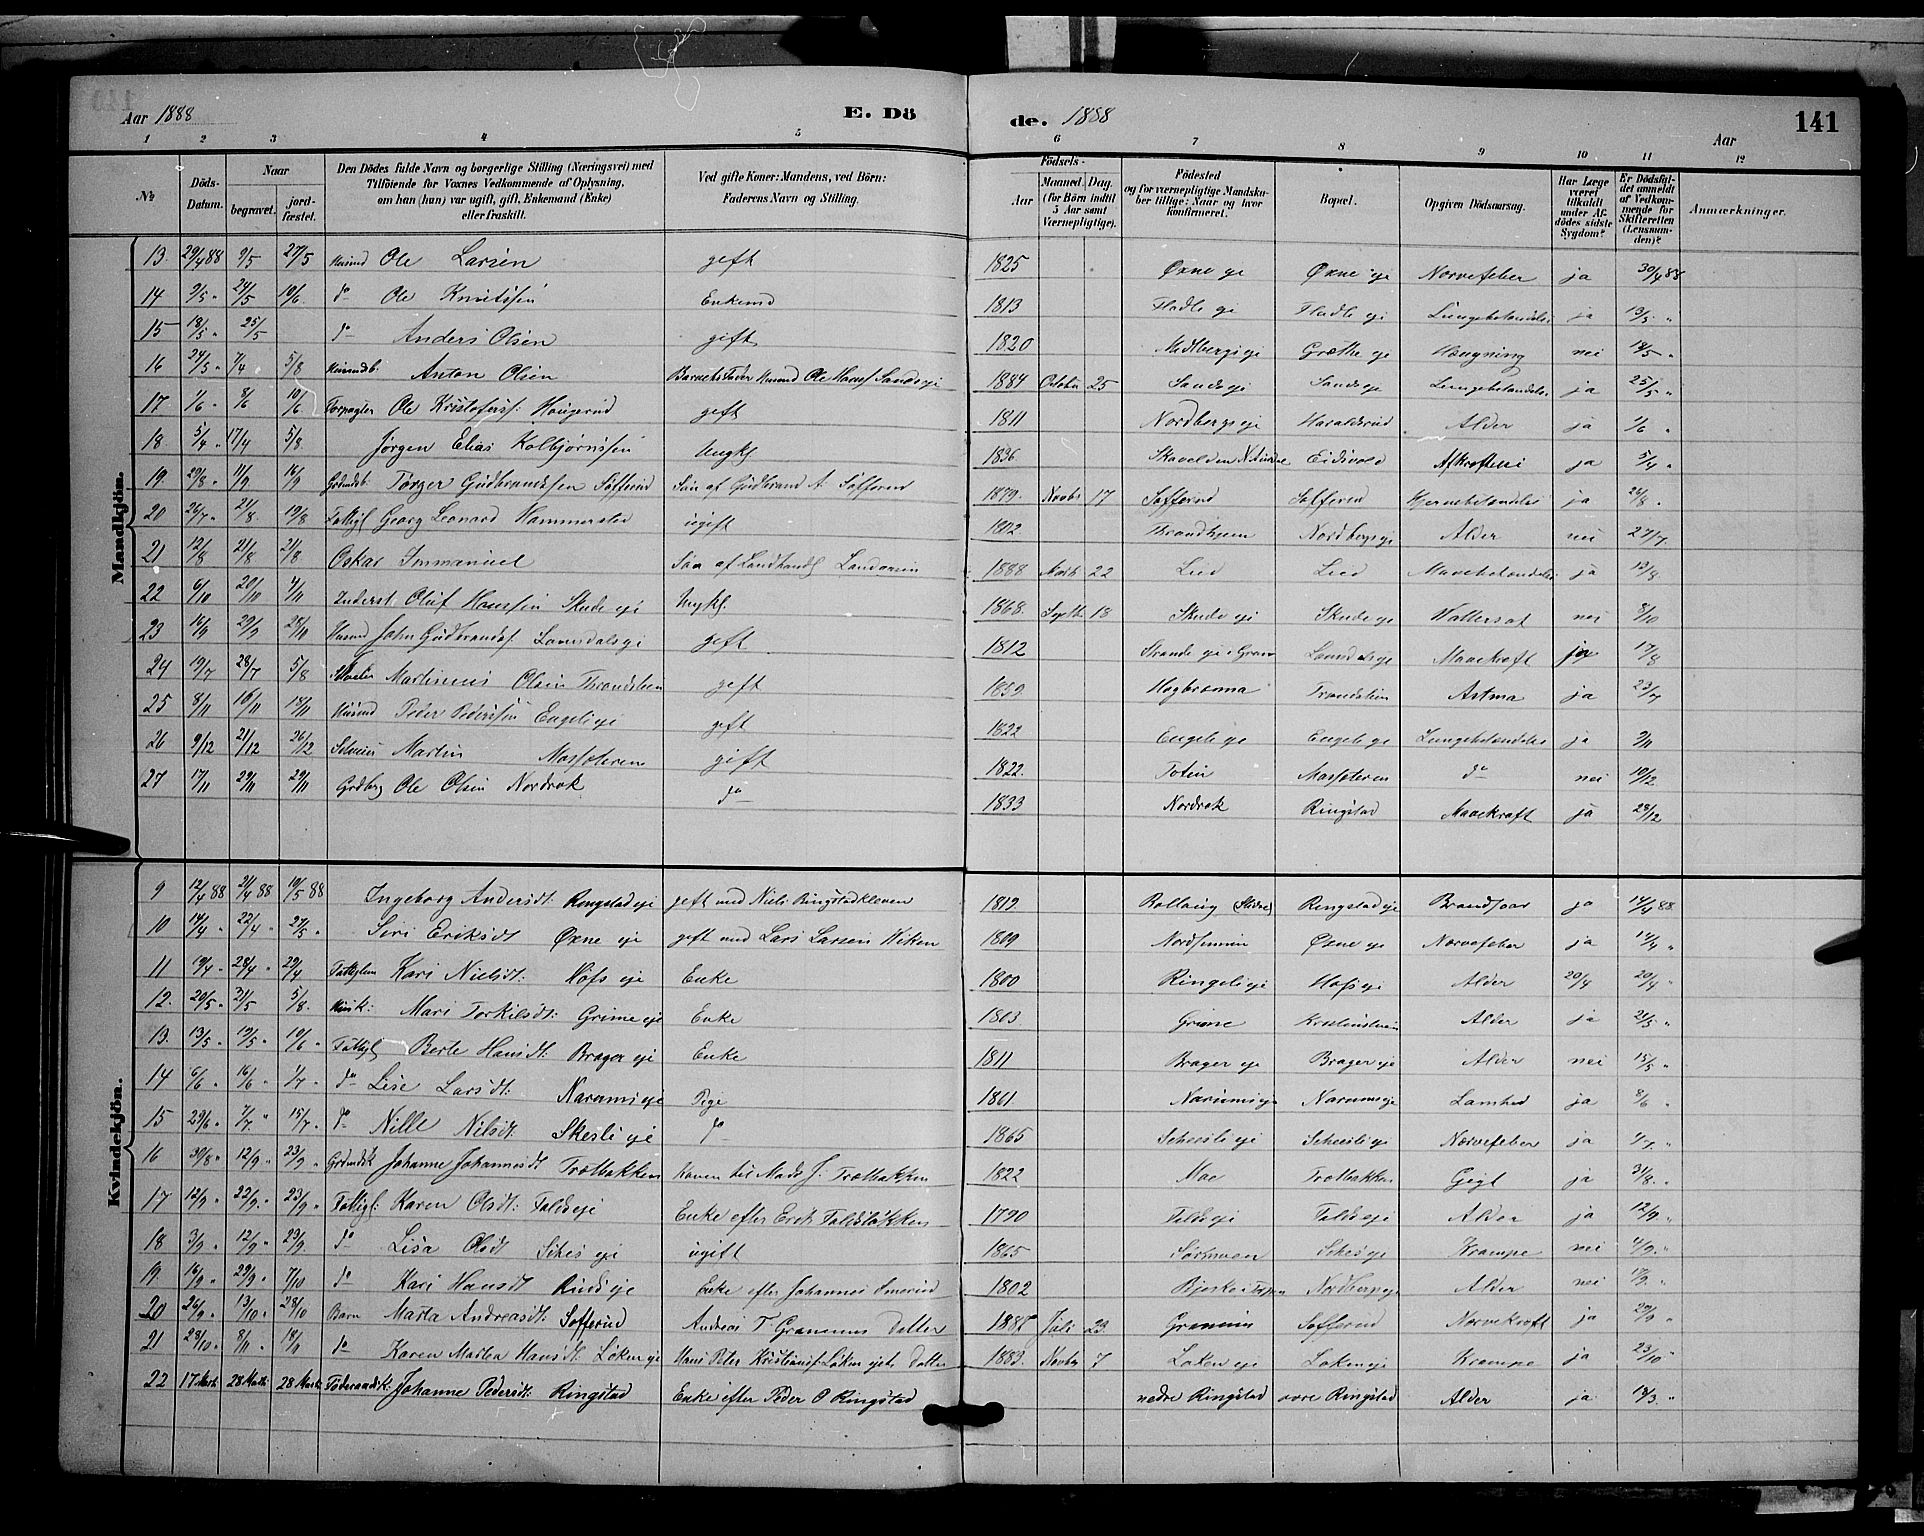 Aar 1888
E. Dö
de. 1888
Aar
141
1 2 3 4 5 6 7 8 9 10 11 12
№
Döds-Datum.
Naar
begravet.
jord-fæstet.
Den Dödes fulde Navn og borgerlige Stilling (Næringsvei) med
Tilföiende for Voxnes Vedkommende af Oplysning,
om han (hun) var ugift, gift, Enkemand (Enke)
eller fraskilt.
Ved gifte Koner: Mandens, ved Börn:
Faderens Navn og Stilling.
Födsels-
Aar
Maaned. Dag.
(for Börn indtil
5 Aar samt
Værnepligtige).
Födested
og for værnepligtige Mandskaber tillige: Naar og hvor
konfirmeret.
Bopæl.
Opgiven Dödsaarsag.
Har Læge
været
tilkaldt
under Afdödes sidste
Sygdom?
Er Dödsfaldet anmeldt
af Vedkommende for
Skifteretten
(Lensmanden)?
Anmærkninger.
Mandkjön.
13. 29/4 88 9/5 27/5 Husmd Ole Larsen gift 1825 Øxne eje Øxne eje Nervefeber ja 30/4 88
14 9/5 " 24/5 10/6 do Ole Knutssen Enkemd 1813 Fladle eje Fladle eje Lungebetændelse ja 13/5 "
15 18/5 " 25/5 do Anders Olsen gift 1820 Midtbergseje Græthe eje Hængning nei 18/5 "
16 24/5 " 7/4 5/8 Husmdb. Anton Olsen Barnets Fader Husmd Ole Hanss Sandseje 1884 October 25 Sandseje Sandseje Lungebetændelse ja 25/5 "
17 1/6 " 8/6 10/6 Forpagter Ole Kristofers: Haugerud gift 1811 Nordbergseje Haraldsrud Alder ja 1/6 "
18 5/4 " 17/4 5/8 Jørgen Elias Kolbjørnssen Ungk. 1836 Eidsvold Afkræftelse ja 5/4 "
19. 29/8 " 11/9 16/9 Grdmdsb. Torger Gudbrandssen Søfferud Søn af Gudbrand A. Søfferud 1879 Novbr 17 Søfferud Søfferud Hjernebetændelse ja 26/8 "
20 26/7 " 21/8 19/8 Fattigl Georg Leonard Hammerstad ugift 1802. Throndhjem Nordbergseje Alder nei 27/7
21 12/8 21/8 21/8 Oskar Immanuel Søn af Landhandl. 1888 Marts 22 Lied Lied Mavebetændelse ja 13/8
22 6/10 20/10 4/11 Inderst Oluf Hanssen Skude eje Ungk. 1868. Septbr 18 Skude eje Skude eje nei 8/10
23 16/9 29/9 28/11 Husmd John Gudbrands. Lomsdalseje gift 1812 Strande eje i Gran Lomsdalseje Mavekræft ja 17/8
24 19/7 28/7 5/8 Martinus Olsen Throndstuen gift 1859 Høgbrænna Trondstuen Astma ja 23/7
25 8/11 16/11 18/11 Husmd Peder Pederssen Engelieje gift 1822 Engelieje Engelieje Lungebetændelse ja 9/11
26 9/12 21/12 26/12 Martin gift 1822. Toten do nei 10/12
27 17/11 29/11 29/11 Grdbrg Ole Olsen Nordrok do 1833 Nordrok Ringstad Mavekræft ja 28/12
Kvindekjön.
9 12/4 88 21/4 88 19/5 88 Ingeborg Andersdt: Ringstadeje gift med Niels Ringstadkleven 1819 (Slidre) Ringstadeje Brandsaar ja 14/4 88
10 14/4 " 22/4 " 27/5 " Siri Eriksdt Øxne eje gift med Lars Larsen Viken 1809 Øxne eje Nervefeber ja 14/4 "
11 19/4 " 28/4 " 29/4 Fattiglem Kari Nielsdt: Hofs eje Enke 1800 Ringelieje Hofs eje Alder 20/4 20/4 "
12. 20/5 " 31/5 5/8. Mari Torkilsdt: Grime eje Enke 1803 Grime Alder ja 21/5 "
13. 13/5 " 19/5 " 10/6 " Fattigl Berte Hansdt: Brager eje Enke 1811 Brager eje Brager eje Alder nei 15/5 "
14 6/6 " 16/6 " 1/7 " do Lise Larsdt: Narumseje Pige 1861 Narumseje Narumseje Lamhed ja 8/6 "
15 29/6 " 7/7 " 15/7 " do Nille Nilsdt: Skeslieje do 1865 Scheslieje Scheslieje Nervefeber ja 1/7 "
16 30/8 " 12/9 " 23/9 " Grdmdsk Johanne Johannesdt Trøtbakken Konen til Mads J. Trøtbakken 1822 Moe Trøtbakken Gigt ja 31/8. "
17 12/9 " 22/9 " 23/9 " Fattigl: Karen Olsdt: Foldseje Enke efter Erik Foldsløkken 1790 Foldseje Foldseje Alder ja 12/9 "
18 3/9 " 12/9 " 23/9. do Lisa Olsdt Schesseje ugift 1865 Krampe nei 4/9. "
19. 16/9 " 29/9 " 7/10 do Kari Hansdt Rudseje Enke efter Johannes Smerud 1802 Nordbergseje Alder nei 17/9. "
20 26/9 " 13/10 " 28/10 Barn Marta Andreasdt: Søfferud Andreas T. Grammens Datter 1887 Juli 23. Søfferud Nervekræft ja 29/9 "
21 23/10 " 8/11 " 18/11 do Karen Martea Hansdt: Løkeneje Hans Peter Kristians. Løkenejets Datter 1883. Novbr 7 Løkeneje Løkeneje Krampe ja 23/10 "
22 17 Marts 28 Marts 28 Marts Føderaadsk. Johanne Pedersdt: Ringstad Enke efter Peder O Ringstad nedre Ringstad øvre Ringstad Alder ja 18/3. "